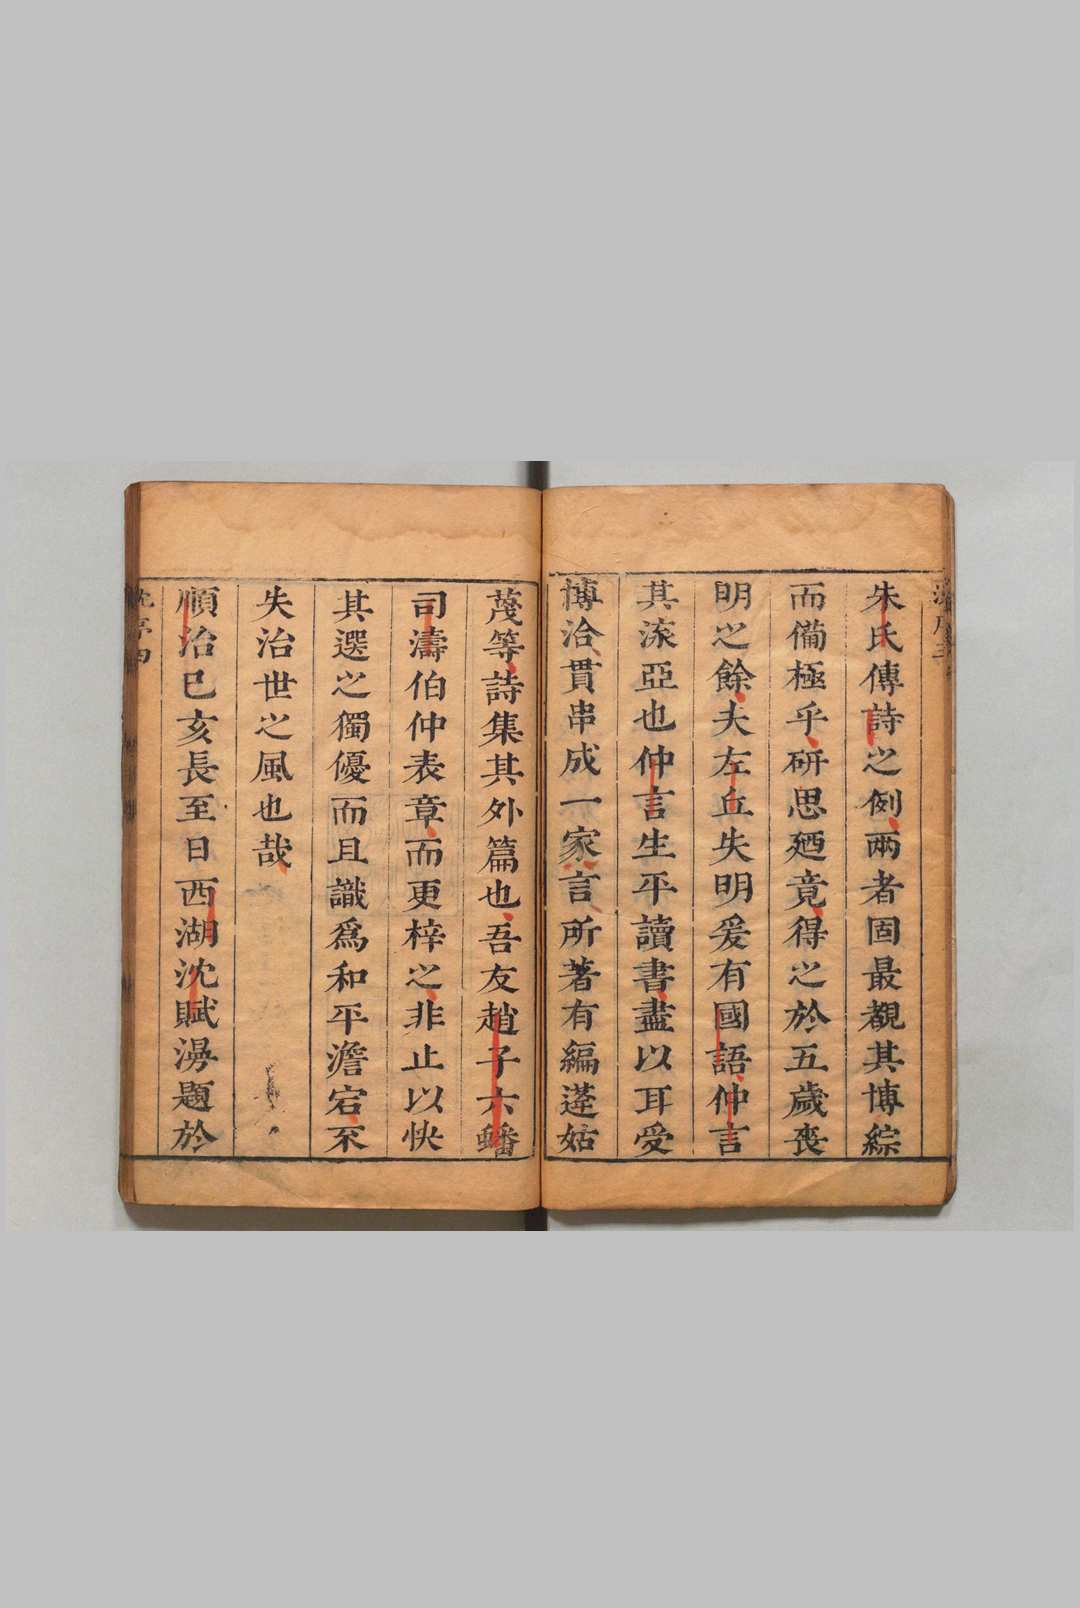 朱氏傳詩之例兩者固最覩其博綜
而備極乎研思廼竟得之於五歲喪
明之餘夫左丘失明爰有國語仲言
其流亞也仲言生平讀書盡以耳受
博洽貫串成一家言所著有編蓬姑
蔑等詩集其外篇也吾友趙子六蟠
司濤伯仲表章而更梓之非止以快
其選之獨優而且識爲和平澹宕不
失治世之風也哉
順治己亥長至日西湖沈賦
題於